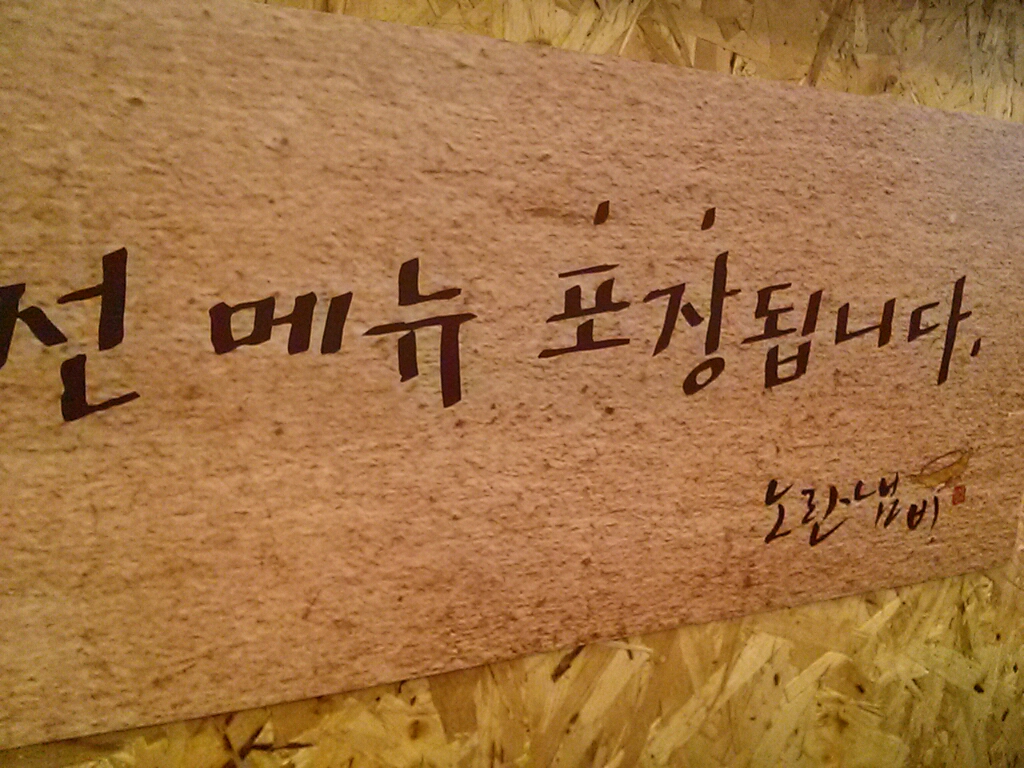 전 메뉴 포장됩니다.
노란냄비